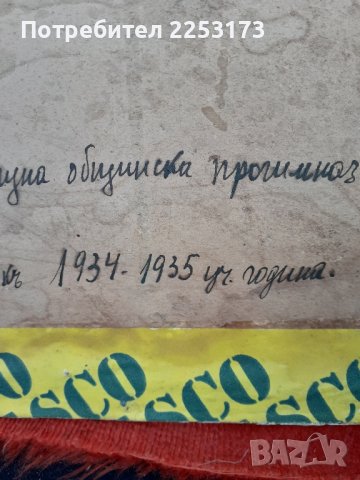 Потребител 2253173
общинска прогимназ
къ 1934-1935 уч. година.
SCO
ESCO
ESCO
ESCO
BAZAR